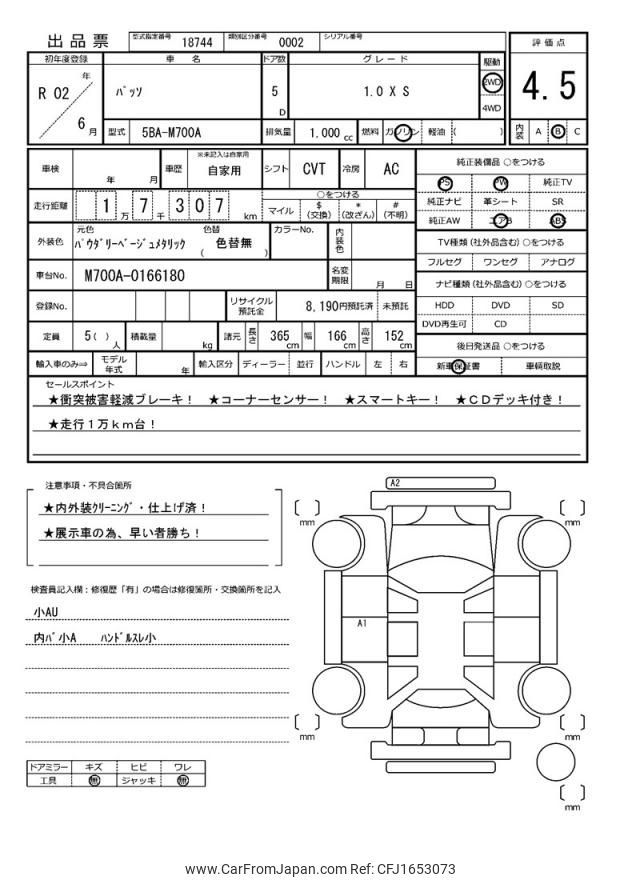 出品票 型式指定番号 18744 類別区分番号 0002 シリアル番号
評価点
4.5
内装 A B C
初年度登録 車名 ドア数 グレード 駆動
R 02 年 6 月
パッソ 5 D 1.0 X S 2WD 4WD
型式 5BA-M700A 排気量 1.000 cc 燃料 ガソリン 軽油 ( )
車検 年 月 車歴 ※未記入は自家用 自家用 シフト CVT 冷房 AC
走行距離 1 万 7 千 3 0 7 km
○をつける
マイル $ (交換) * (改ざん) # (不明)
外装色 元色 パウダリーベージュメタリック 色替 ( 色替無 ) カラーNo. 内装色
車台No. M700A-0166180 名変期限 月 日
登録No. リサイクル預託金 8,190円預託済 未預託
定員 5( ) 人 積載量 kg 諸元 長さ 365 cm 幅 166 cm 高さ 152 cm
輸入車のみ⇒ モデル年式 年 輸入区分 ディーラー 並行 ハンドル 左 右
純正装備品 ○をつける
PS PW 純正TV
純正ナビ 革シート SR
純正AW エアB ABS
TV種類(社外品含む)○をつける
フルセグ ワンセグ アナログ
ナビ種類(社外品含む)○をつける
HDD DVD SD
DVD再生可 CD
後日発送品 ○をつける
新車保証書 車輌取説
セールスポイント
★衝突被害軽減ブレーキ! ★コーナーセンサー! ★スマートキー! ★CDデッキ付き!
★走行1万km台!
注意事項・不具合箇所
★内外装クリーニング・仕上げ済!
★展示車の為、早い者勝ち!
検査員記入欄：修復歴「有」の場合は修復箇所・交換箇所を記入
小AU
内バ小A ハンドルスレ小
ドアミラー キズ ヒビ ワレ
工具 無 ジャッキ 無
A2
A1
mm
mm
mm
mm
mm
www.CarFromJapan.com Ref: CFJ1653073